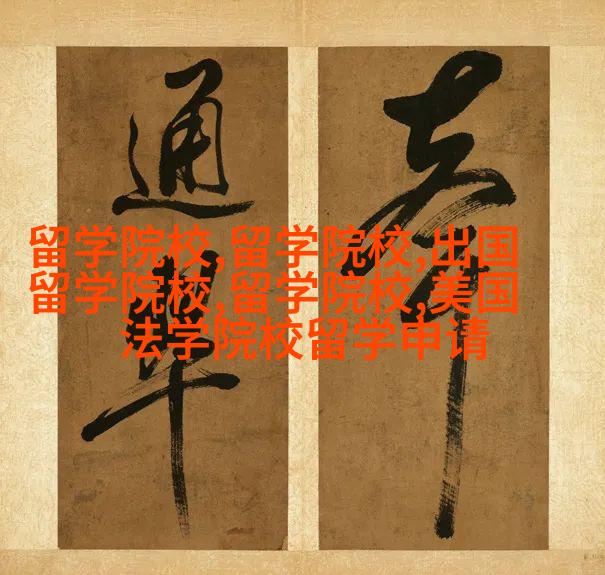 通
留学院校,留学院校,出国
留学院校,留学院校,美国
法学院校留学申请